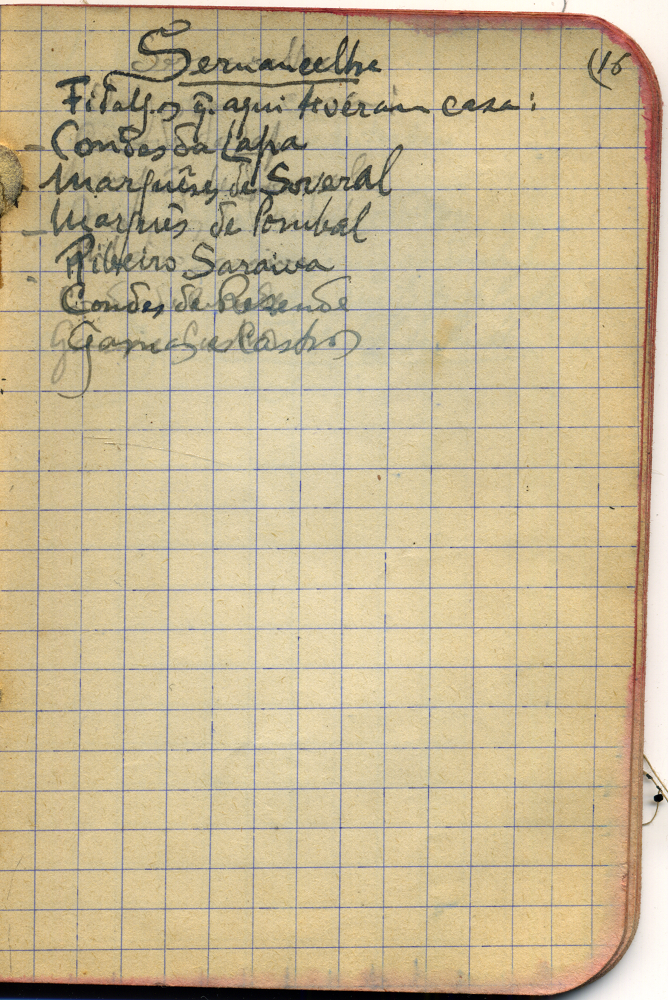 (16
Sernancelhe
Fidalgos q. aqui tivéram casa:
- Condes da Lapa
- Marquêses de Soveral
- Marquês de Pombal
Ribeiro Saraiva
Condes de Rezende
Castros